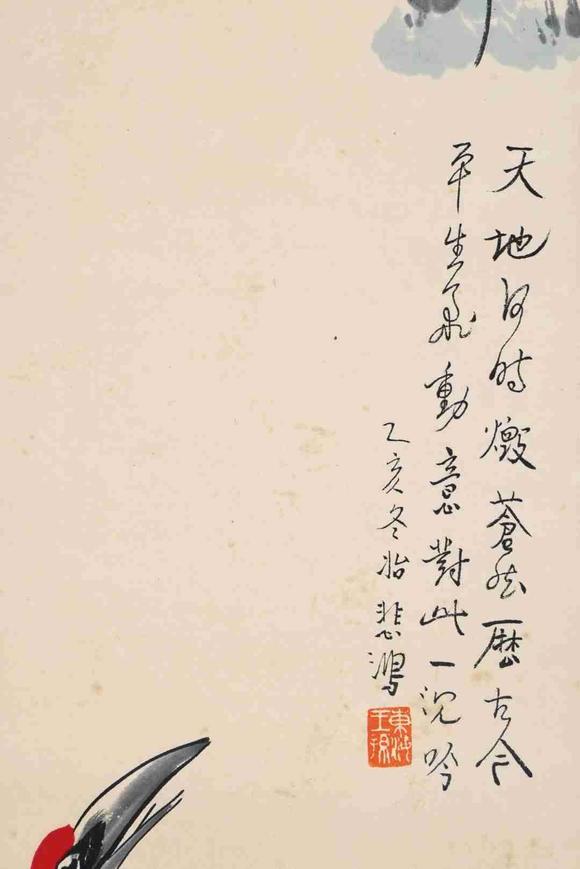 天地何時燬蒼然歷古今
平生飛動意對此一沉吟
乙亥冬始悲鴻
東海王孫